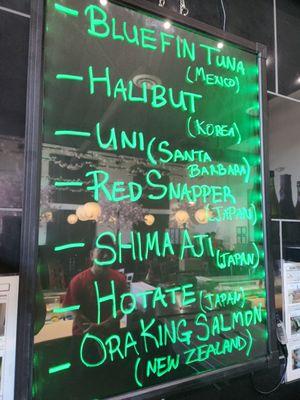 - BLUEFIN TUNA
(MEXICO)
- HALIBUT
(KOREA)
- UNI (SANTA
BARBARA)
- RED SNAPPER
(JAPAN)
- SHIMA AJI (JAPAN)
- HOTATE (JAPAN)
- ORA KING SALMON
(NEW ZEALAND)